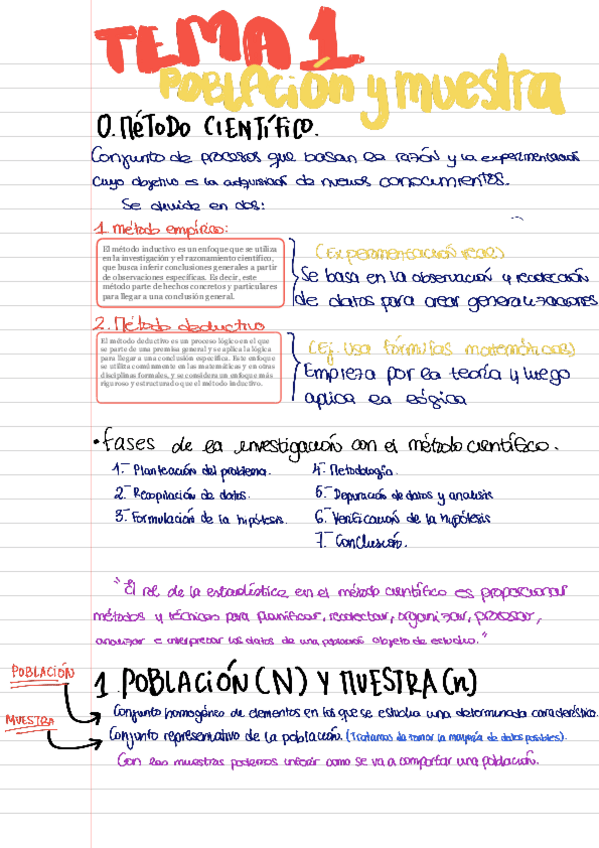 TEMA 1
Población y muestra
0. MÉTODO CIENTÍFICO.
Conjunto de procesos que basan la razón y la experimentación
cuyo objetivo es la adquisición de nuevos conocimientos.
Se divide en dos:
1. método empírico:
El método inductivo es un enfoque que se utiliza
en la investigación y el razonamiento científico,
que busca inferir conclusiones generales a partir
de observaciones específicas. Es decir, este
método parte de hechos concretos y particulares
para llegar a una conclusión general.
(Experimentación real)
Se basa en la observación y recolección
de datos para crear generalizaciones
2. Método deductivo
El método deductivo es un proceso lógico en el que
se parte de una premisa general y se aplica la lógica
para llegar a una conclusión específica. Este enfoque
se utiliza comúnmente en las matemáticas y en otras
disciplinas formales, y se considera un enfoque más
riguroso y estructurado que el método inductivo.
(Ej. Usa fórmulas matemáticas)
Empieza por la teoría y luego
aplica la lógica
• fases de la investigación con el método científico.
1.- Planteación del problema.
2.- Recopilación de datos.
3.- Formulación de la hipótesis.
4.- Metodología.
5.- Depuración de datos y analisis
6.- Verificación de la hipótesis
7.- Conclusión.
"El rol de la estadística en el método científico es proporcionar
métodos y técnicas para planificar, recolectar, organizar, procesar,
analizar e interpretar los datos de una población objeto de estudio."
1. POBLACIÓN (N) Y MUESTRA (n)
POBLACIÓN
Conjunto homogéneo de elementos en los que se estudia una determinada característica.
MUESTRA
Conjunto representativo de la población. (Tratamos de tomar la mayoría de datos posibles).
Con las muestras podemos inferir como se va a comportar una población.